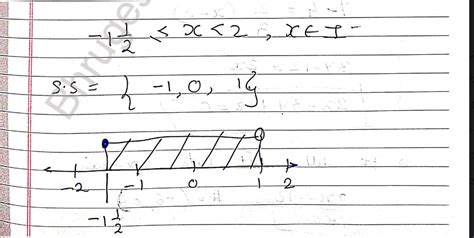 -1 1/2 ≤ x < 2 , x ∈ I
S.S = { -1, 0, 1}
-2 -1 0 1 2
-1 1/2